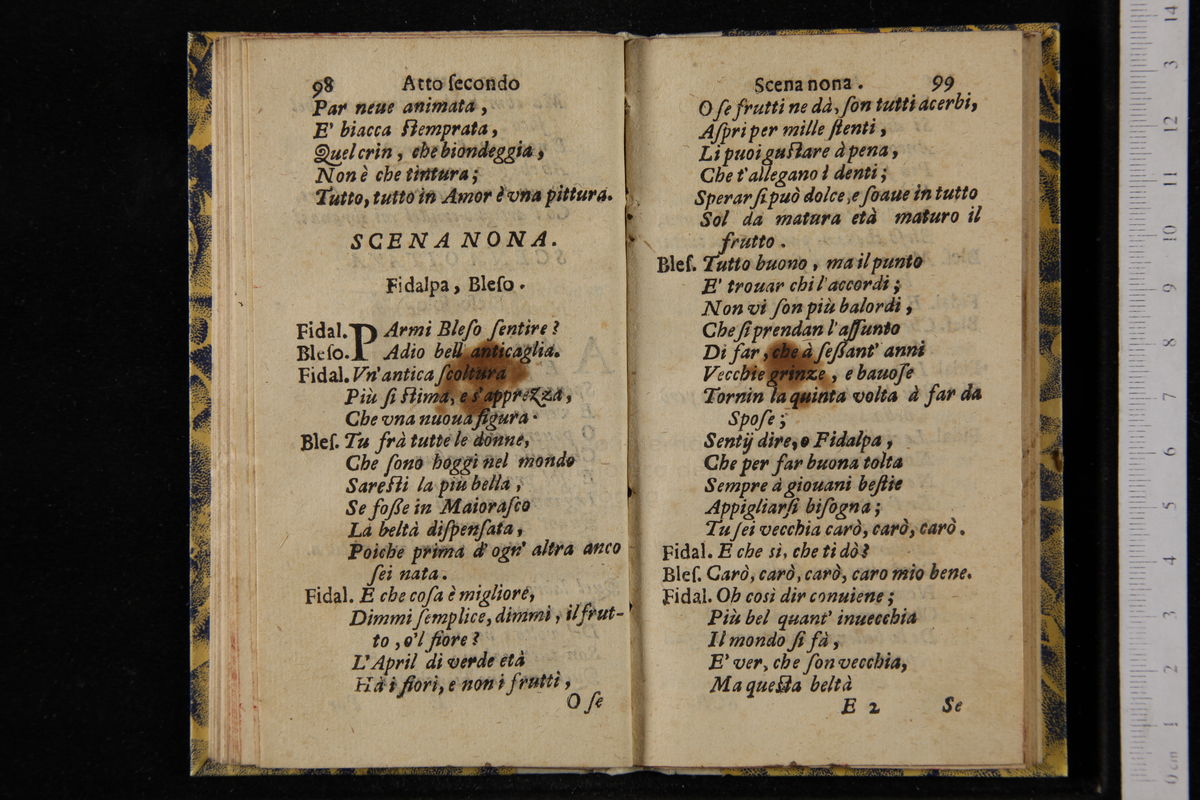 98 Atto ſecondo
Par neue animata,
E' biacca ſtemprata,
Quel crin, che biondeggia,
Non è che tintura;
Tutto, tutto in Amor è vna pittura.
SCENA NONA.
Fidalpa, Bleſo.
Fidal. PArmi Bleſo ſentire?
Bleſo. Adio bell' anticaglia.
Fidal. Vn' antica ſcoltura
Più ſi ſtima, e s'apprezza,
Che vna nuoua figura.
Bleſ. Tu frà tutte le donne,
Che ſono hoggi nel mondo
Sareſti la più bella,
Se foſſe in Maioraſco
La beltà diſpenſata,
Poiche prima d' ogn' altra anco
ſei nata.
Fidal. E che coſa è migliore,
Dimmi ſemplice, dimmi, il frut-
to, o'l fiore?
L' April di verde età
Hà i fiori, e non i frutti,
O ſe
Scena nona. 99
O ſe frutti ne dà, ſon tutti acerbi,
Aſpri per mille ſtenti,
Li puoi guſtare à pena,
Che t'allegano i denti;
Sperar ſi può dolce, e ſoaue in tutto
Sol da matura età maturo il
frutto.
Bleſ. Tutto buono, ma il punto
E' trouar chi l'accordi;
Non vi ſon più balordi,
Che ſi prendan l'aſſunto
Di far, che à ſeſſant' anni
Vecchie grinze, e bauoſe
Tornin la quinta volta à far da
Spoſe;
Sentij dire, o Fidalpa,
Che per far buona tolta
Sempre à giouani beſtie
Appigliarſi biſogna;
Tu ſei vecchia carò, carò, carò.
Fidal. E che sì, che ti dò?
Bleſ. Carò, carò, carò, caro mio bene.
Fidal. Oh così dir conuiene;
Più bel quant' inuecchia
Il mondo ſi fà,
E' ver, che ſon vecchia,
Ma queſta beltà
E 2 Se
14
3
12
11
10
9
8
7
6
5
4
3
2
1
0 cm